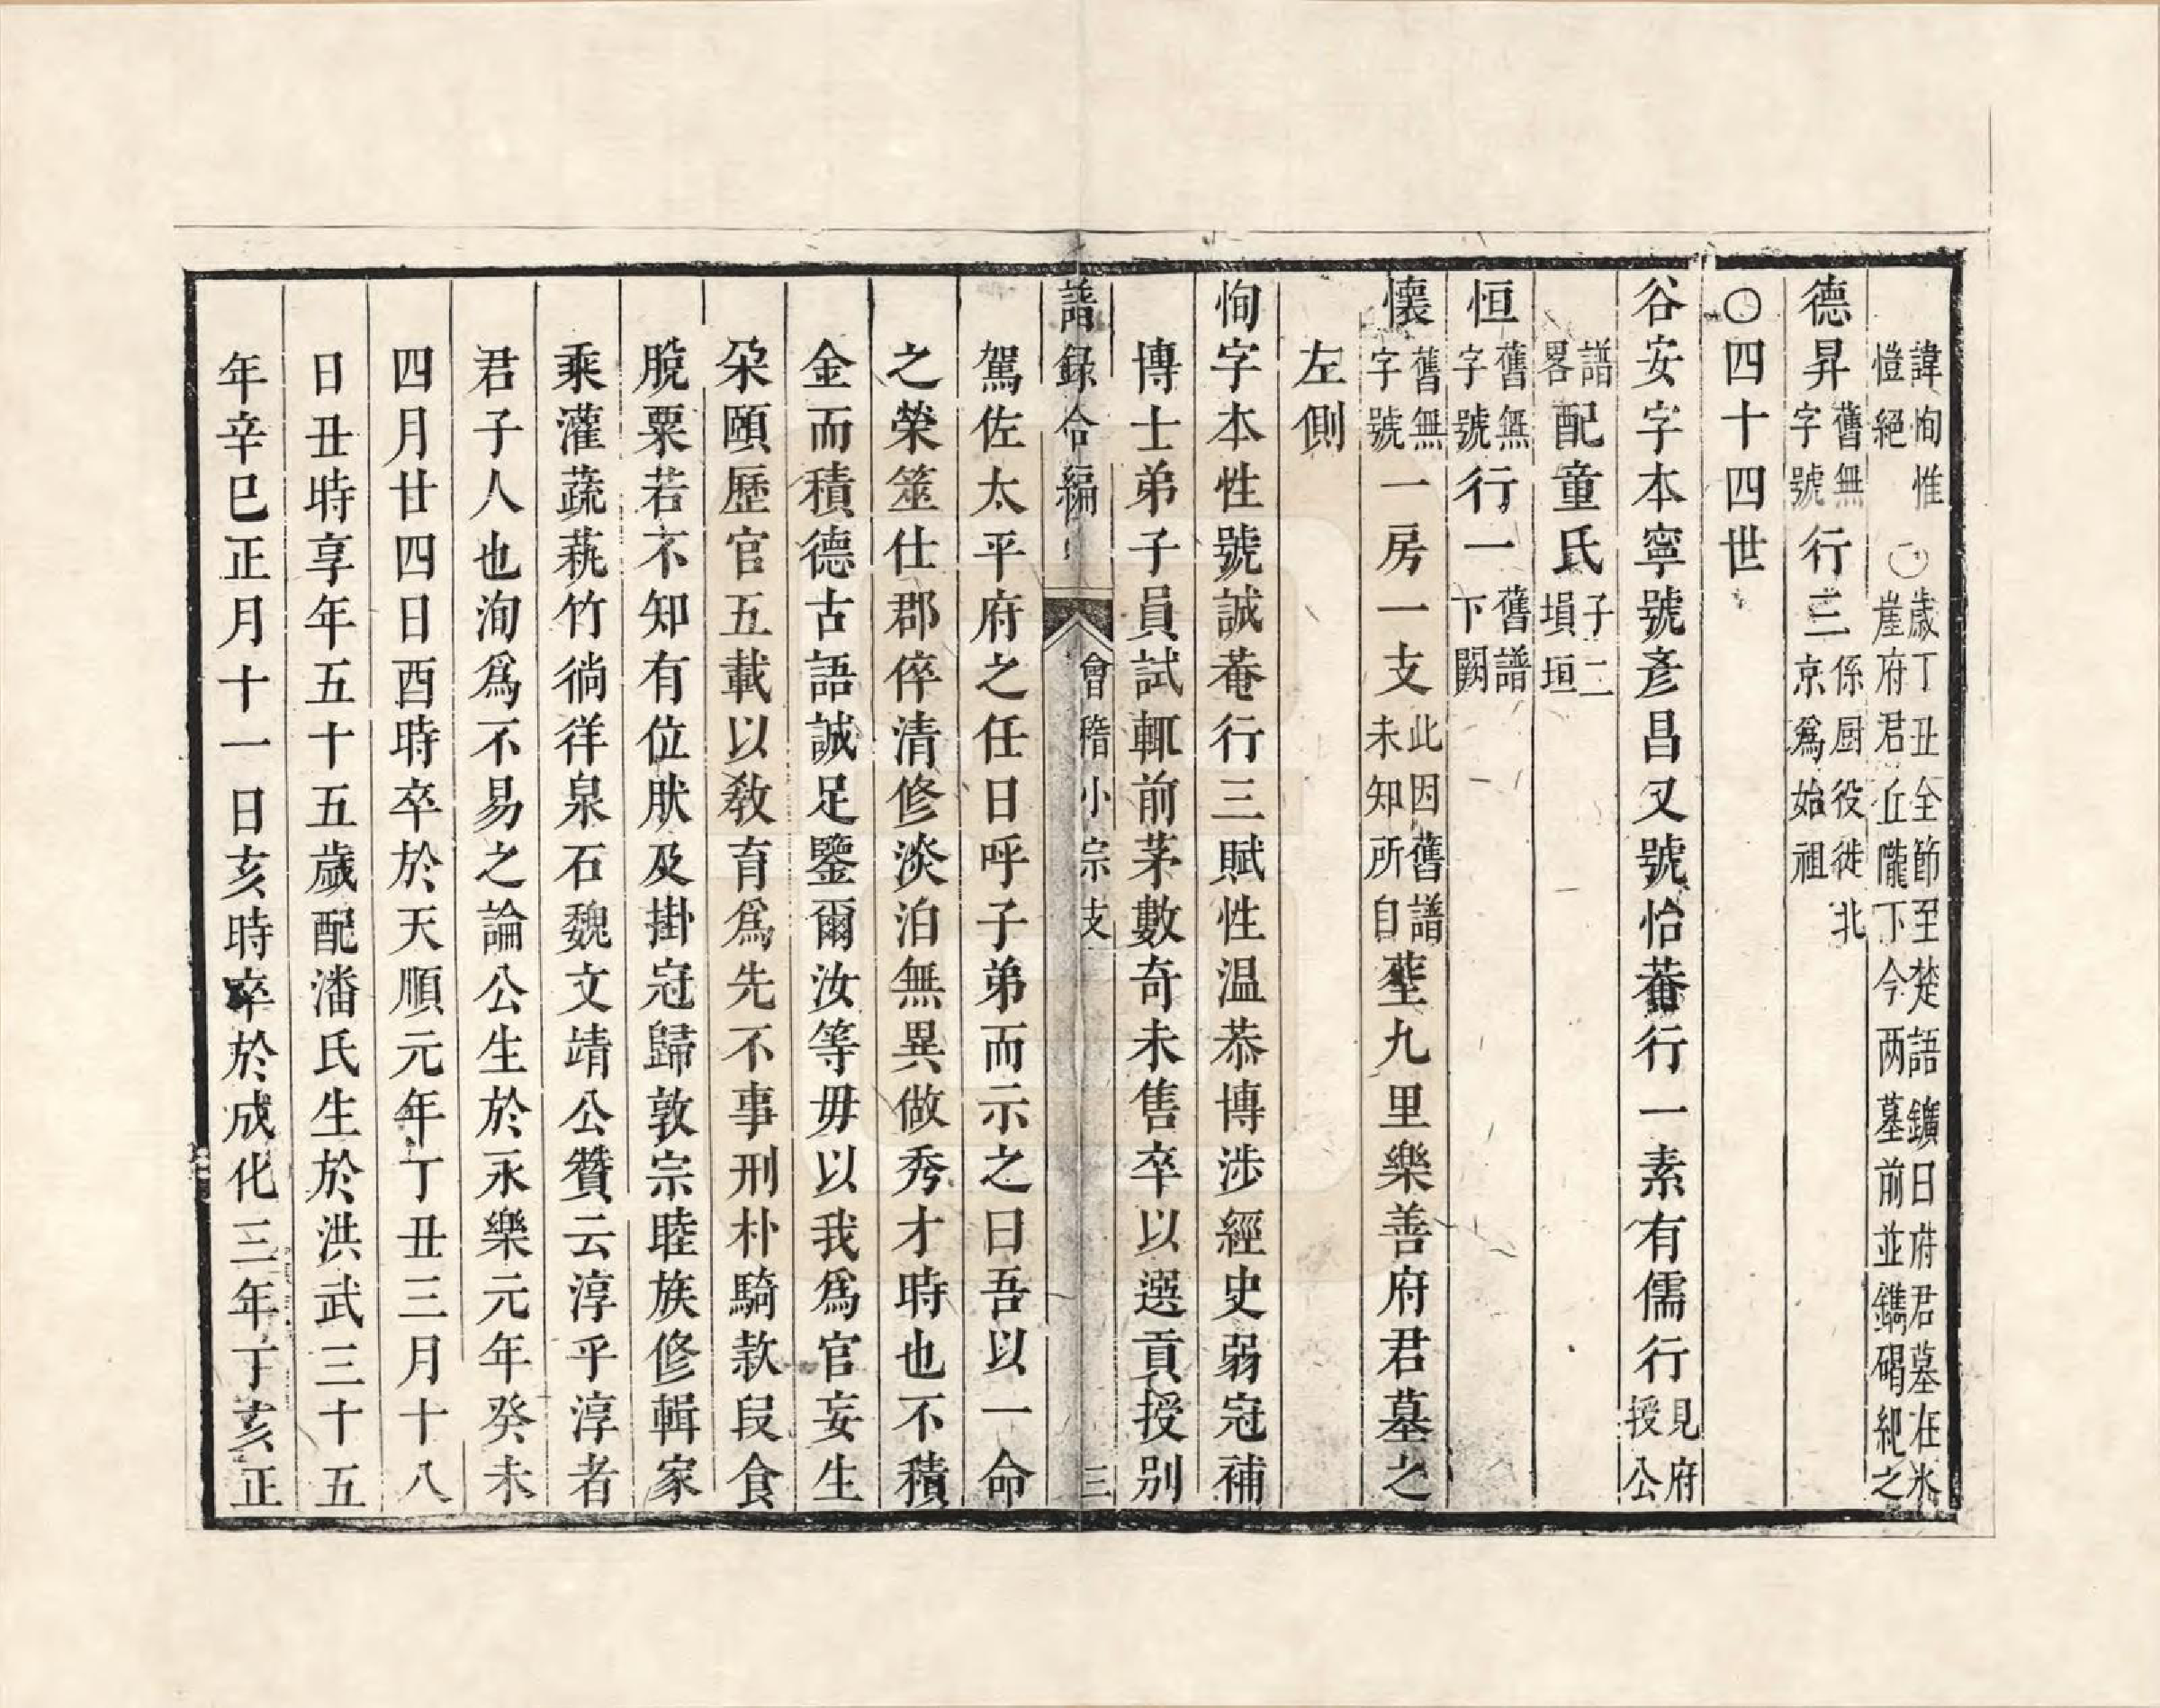 諱恂惟愷絕 〇歲丁丑全節至楚語鑛曰府君墓在氷崖府君丘隴下今两墓前並鐫碣紀之
德昇舊無字號行三係厨役徙北京爲始祖
〇四十四世
谷安字本寧號彥昌又號怡菴行一素有儒行見府授公
譜畧配童氏子二塤垣
恒舊無字號行一舊譜下闕
懷舊無字號一房一支此因舊譜未知所自塟九里樂善府君墓之
左側
恂字本性號誠菴行三賦性温恭博涉經史弱冠補
博士弟子員試輒前茅數奇未售卒以選貢授别
譜錄合編 會稽小宗支 三
駕佐太平府之任日呼子弟而示之曰吾以一命
之榮筮仕郡倅清修淡泊無異做秀才時也不積
金而積德古語誠足鑒爾汝等毋以我爲官妄生
朶頤歷官五載以敎育爲先不事刑朴騎欵段食
脫粟若不知有位肰及掛冠歸敦宗睦族修輯家
乘灌蔬蓺竹徜徉泉石魏文靖公贊云淳乎淳者
君子人也洵爲不易之論公生於永樂元年癸未
四月廿四日酉時卒於天順元年丁丑三月十八
日丑時享年五十五歲配潘氏生於洪武三十五
年辛巳正月十一日亥時卒於成化三年丁亥正